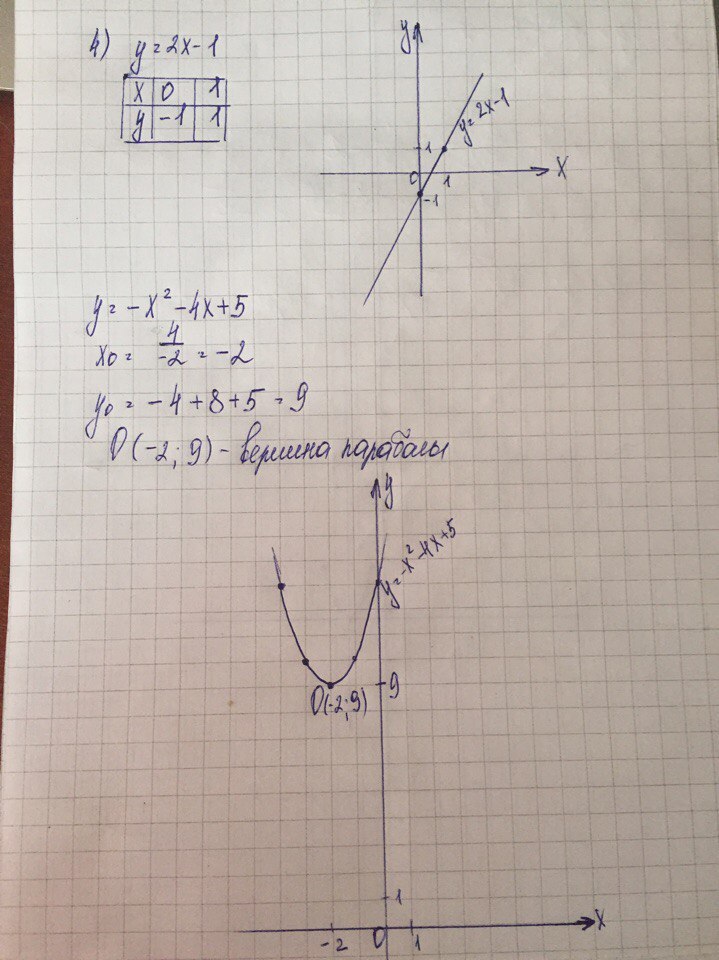 4) y = 2x - 1
x 0 1
y -1 1
y
y = 2x - 1
1
0
1
x
-1
y = -x² - 4x + 5
x₀ = 4/-2 = -2
y₀ = -4 + 8 + 5 = 9
O(-2; 9) - вершина параболы
y
y = -x² - 4x + 5
9
O(-2; 9)
1
x
-2
0
1